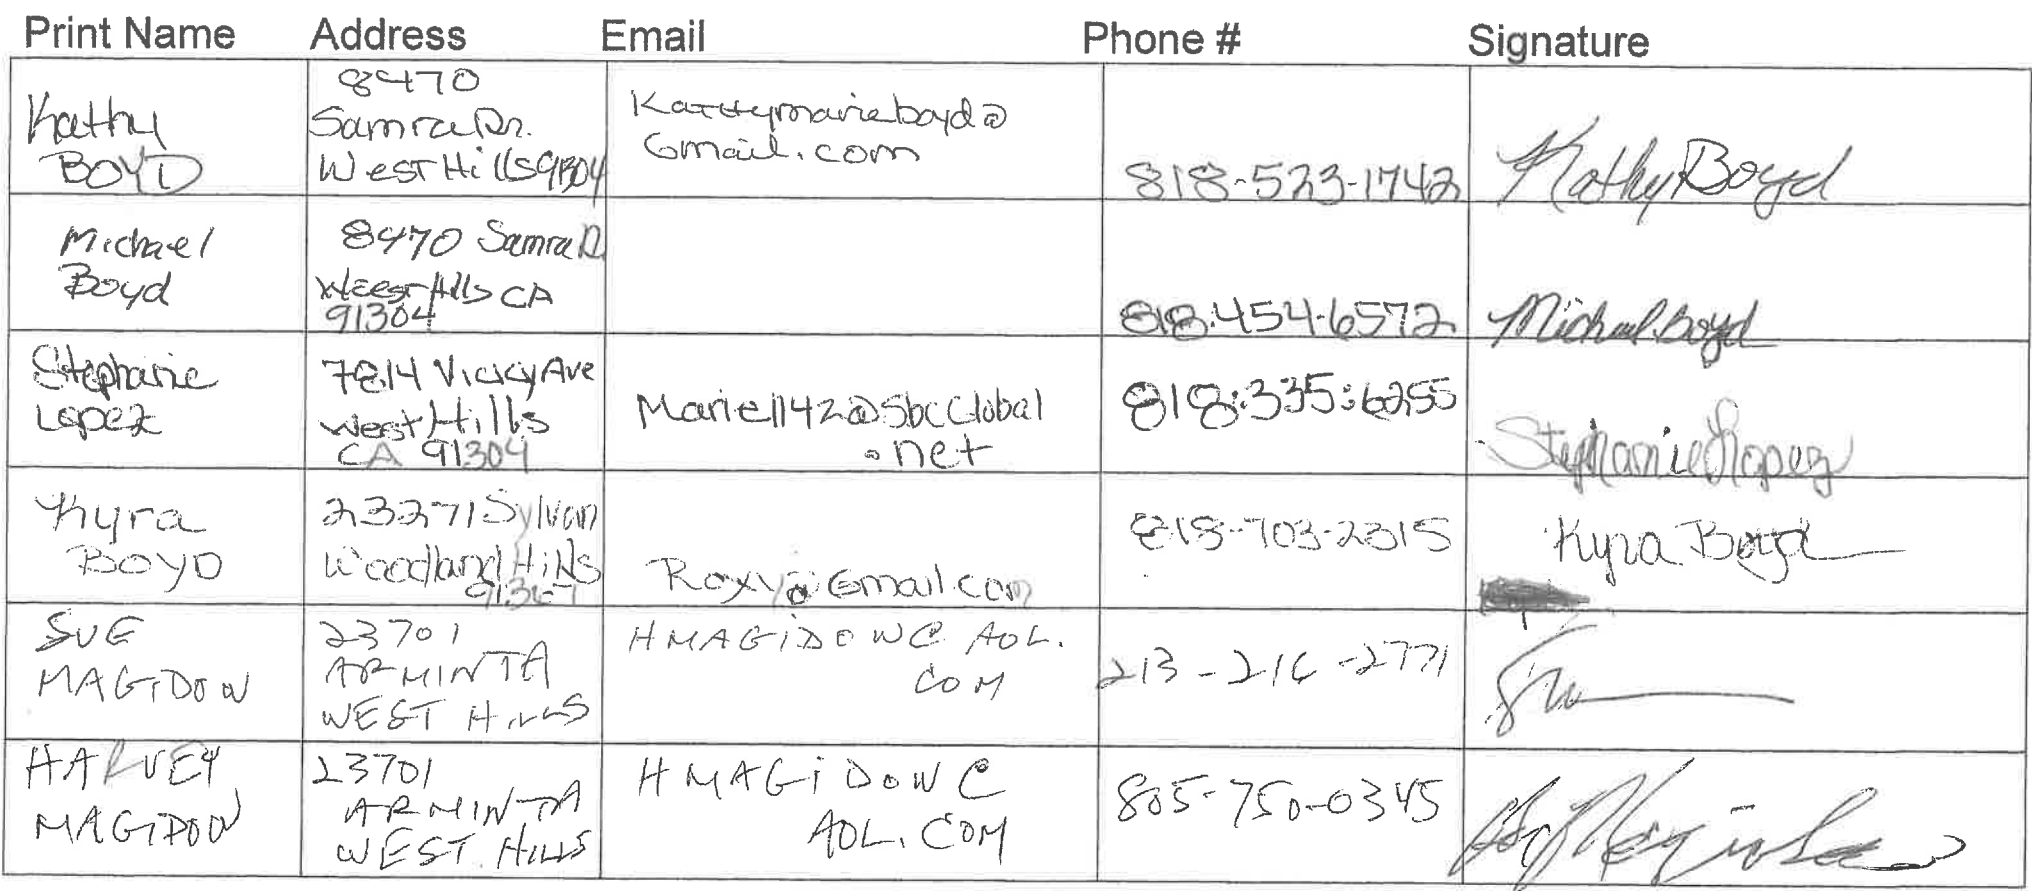 Print Name Address Email Phone # Signature
Kathy
BOYD
8470
Samra Dr.
West Hills 91304
Kathymarieboyd@
Gmail.com
818-523-1742
Kathy Boyd
Michael
Boyd
8470 Samra D
West Hills CA
91304
818.454.6572
Michael Boyd
Stephanie
Lopez
7814 Vicky Ave
West Hills
CA 91304
Marie1142@SbcGlobal
.net
818:335:6255
Stephanie Lopez
Kyra
BOYD
23271 Sylvan
Woodland Hills
91367
Roxy@Gmail.com
818-703-2315
Kyra Boyd
SUE
MAGIDOW
23701
ARMINTA
WEST HILLS
HMAGIDOW@ AOL.
COM
213-216-2771
HARVEY
MAGIDOW
23701
ARMINTA
WEST HILLS
HMAGIDOW@
AOL.COM
805-750-0345